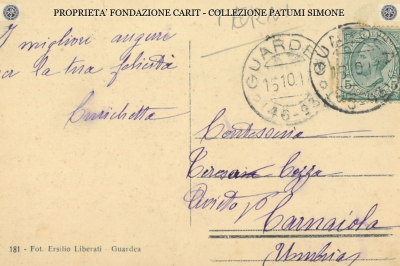 PROPRIETA' FONDAZIONE CARIT - COLLEZIONE PATUMI SIMONE
I migliori auguri
la tua felicità
Enrichetta
GUARDEA
15.10.1
(46-93)
GUARDEA
5
Contessina
Cozza
Orvieto p
Carnaiola
Umbria
181 - Fot. Ersilio Liberati - Guardea